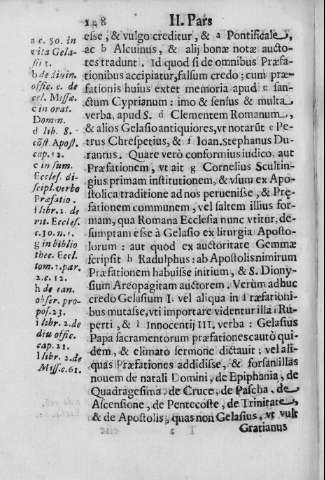 198 II. Pars
a c. 50. in
vita Gela-
sii 1.
b de diuin.
offic. c. de
cel. Missæ
c in orat.
Domin.
d lib. 8.
cōst Apost.
cap. 12.
e in sum.
Eccles. di-
scipl. verbo
Præfatio.
f libr. 2. de
rit. Eccles.
c. 30. n. 1.
g in biblio
thec. Eccl.
tom. 1. par.
2. c. 12.
h de can.
obser. pro-
pos. 23.
i libr. 2. de
diu offic.
cap. 21.
l lib. 2. de
Miss. c. 61.
esse, & vulgo creditur, & a Pontificale,
ac b Alcuinus, & alij bonæ notæ aucto-
res tradunt. Id quod si de omnibus Præfa-
tionibus accipiatur, falsum credo; cum præ-
fationis huius extet memoria apud c san-
ctum Cyprianum: imo & sensus & multa
verba, apud S. d Clementem Romanum,
& alios Gelasio antiquiores, vt notarūt e Pe-
trus Chrespetius, & f Ioan. Stephanus Du-
rantus. Quare verò conformius iudico, aut
Præfationem, vt ait g Cornelius Scultin-
gius primam institutionem, & vsum ex Apo-
stolica traditione ad nos peruenisse, & Præ-
fationem communem, vel saltem illius for-
mam, qua Romana Ecclesia nunc vtitur, de-
sumptam esse à Gelasio ex liturgia Aposto-
lorum: aut quod ex auctoritate Gemmæ
scripsit h Radulphus: ab Apostolis nimirum
Præfationem habuisse initium, & S. Diony-
sium Areopagitam auctorem. Verùm adhuc
credo Gelasium I. vel aliqua in Præfationi-
bus mutasse, vti importare videntur illa i Ru-
perti, & l Innocentij III. verba: Gelasius
Papa sacramentorum præfationes cautò qui-
dem, & elimato sermone dictauit: vel ali-
quas Præfationes addidisse, & forsan illas
nouem de natali Domini, de Epiphania, de
Quadragesima, de Cruce, de Pascha, de
Ascensione, de Pentecoste, de Trinitate,
& de Apostolis, quas non Gelasius, vt vult
Gratianus